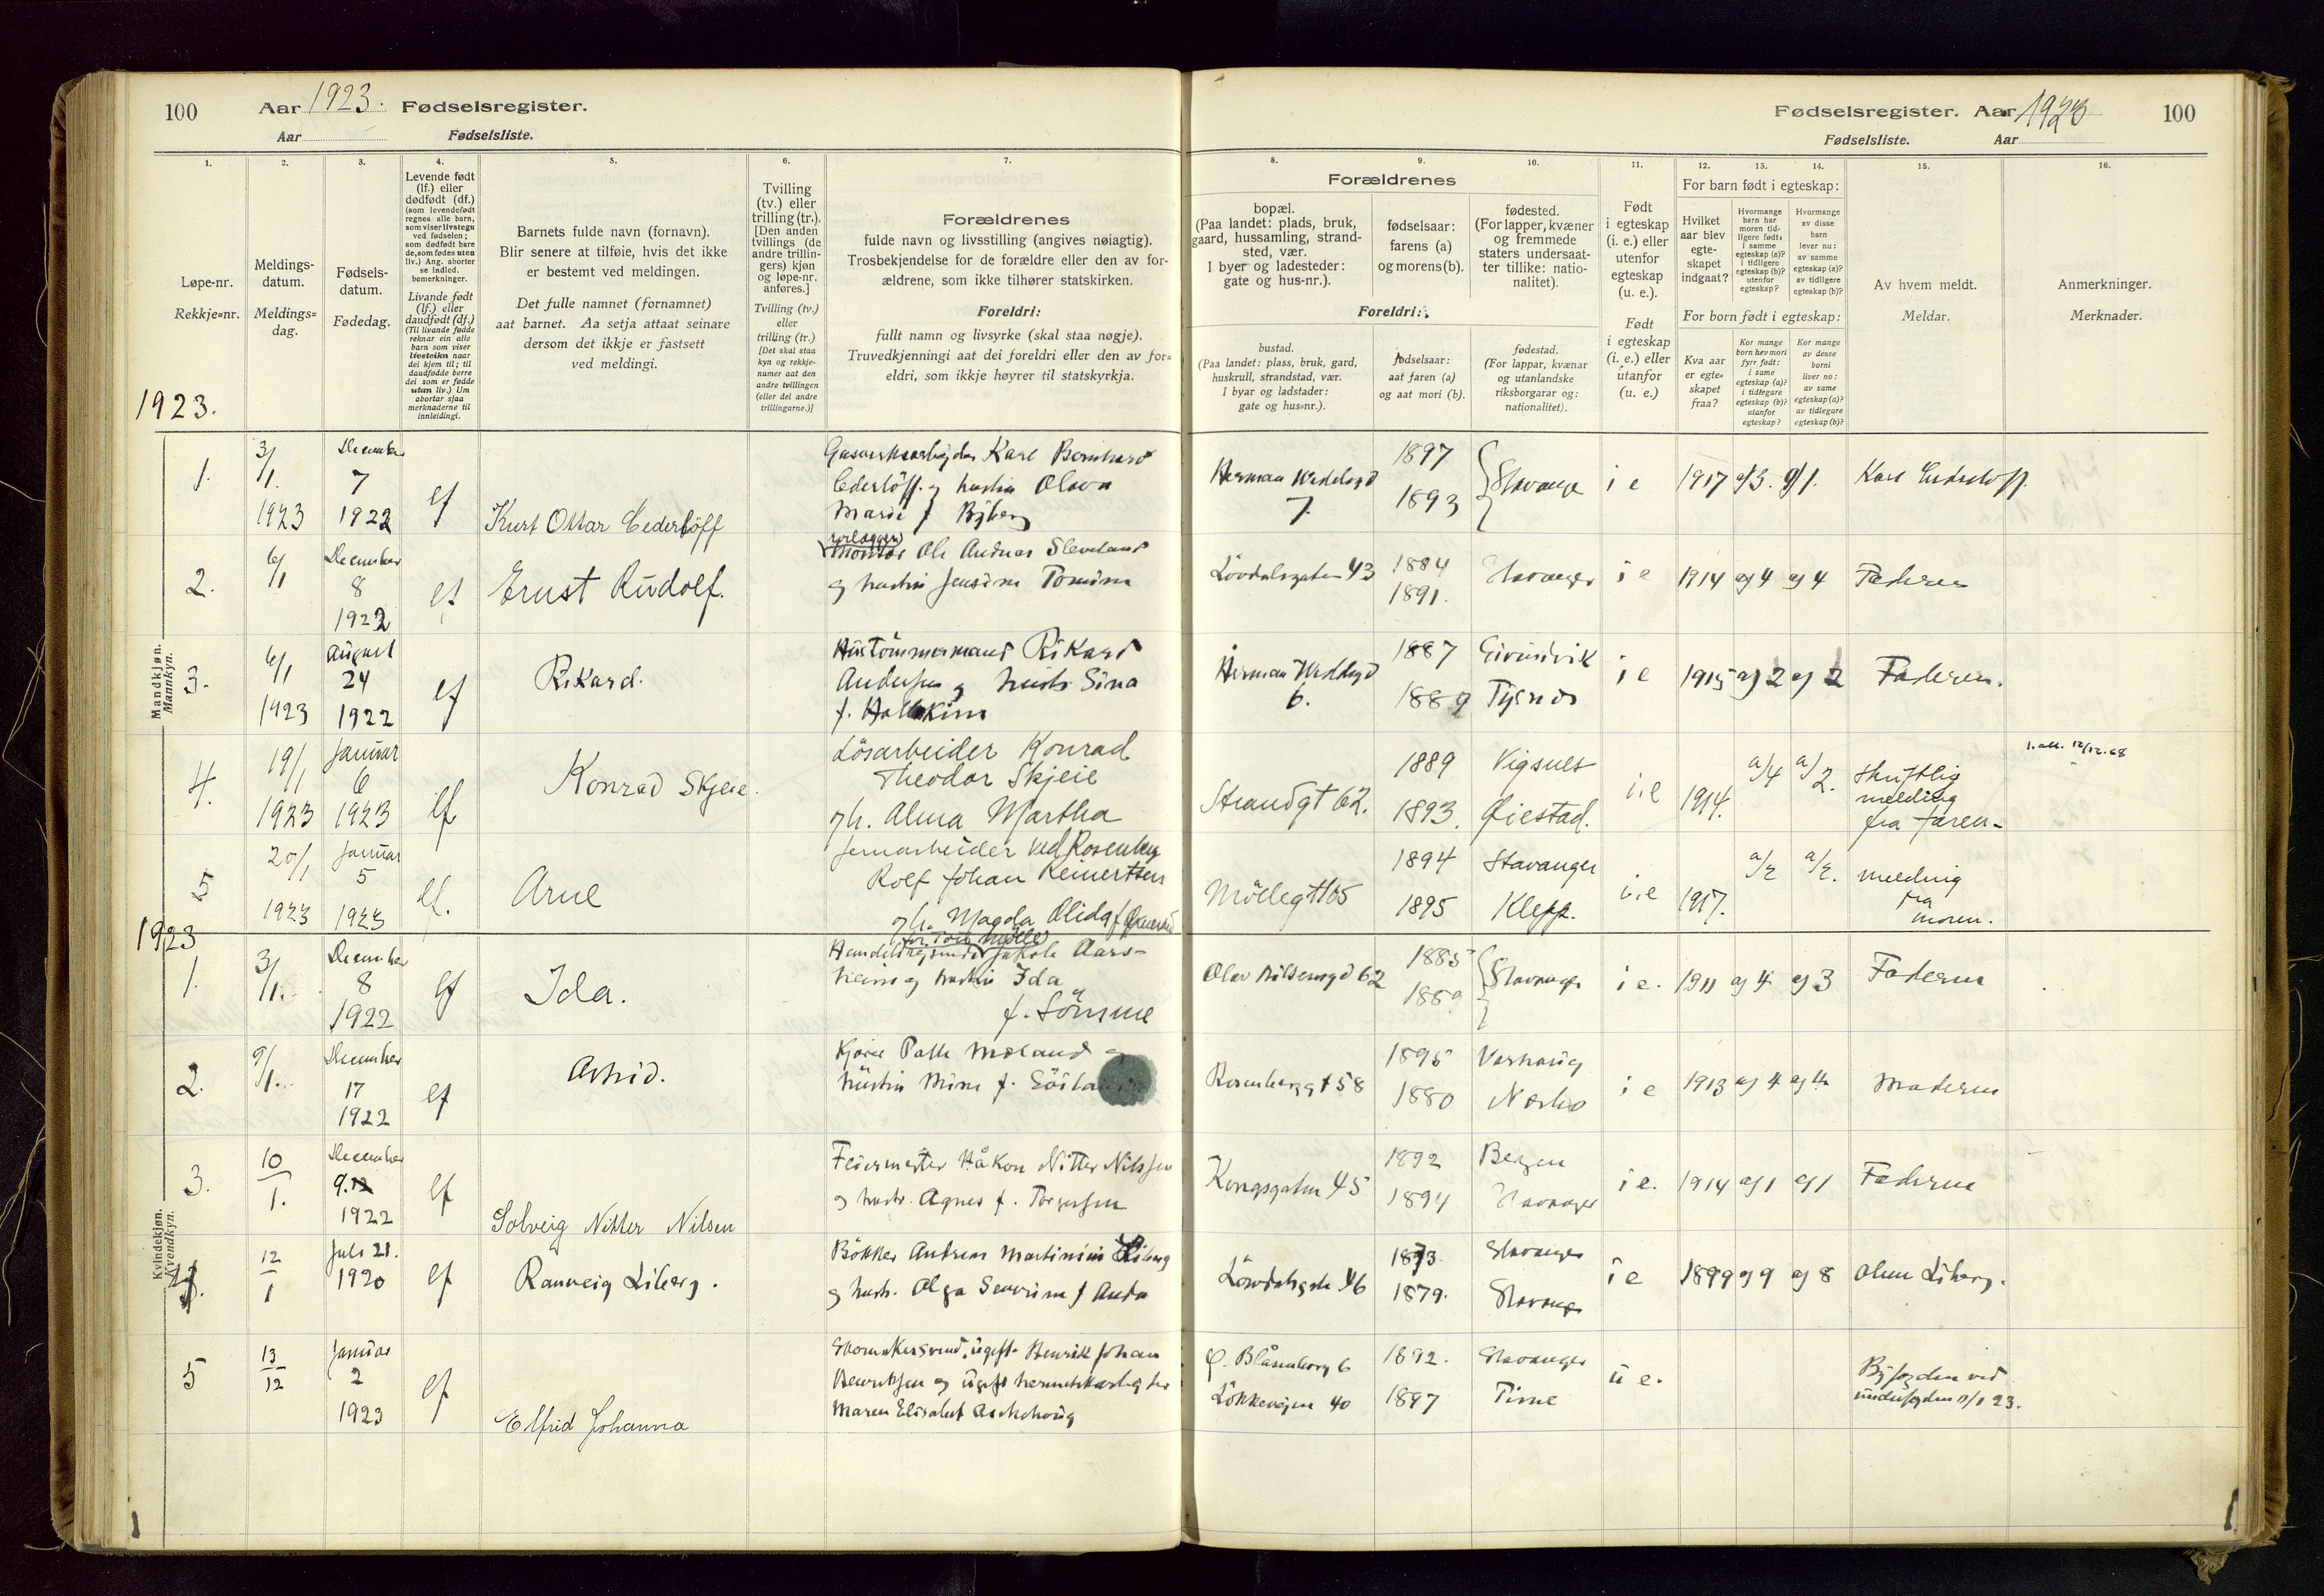 100 Aar 1923. Fødselsregister.
Aar Fødselsliste.
1. 2. 3. 4. 5. 6. 7.
Løpe-nr.
Rekkje=nr.
Meldings-
datum.
Meldings=
dag.
Fødsels-
datum.
Fødedag.
Levende født
(lf.) eller
dødfødt (df.)
(som levendefødt
regnes alle barn,
som viser livstegn
ved fødselen;
som dødfødt bare
de, som fødes uten
liv.) Ang. aborter
se indled.
bemerkninger.
Livande født
(lf.) eller
daudfødt (df.)
(Til livande fødde
reknar ein alle
barn som viser
livsteikn naar
dei kjem til; til
daudfødde berre
dei som er fødde
utan liv.) Um
abortar sjaa
merknaderne til
innleidingi.
Barnets fulde navn (fornavn).
Blir senere at tilføie, hvis det ikke
er bestemt ved meldingen.
Det fulle namnet (fornamnet)
aat barnet. Aa setja attaat seinare
dersom det ikkje er fastsett
ved meldingi.
Tvilling
(tv.) eller
trilling (tr.).
[Den anden
tvillings (de
andre trillin-
gers) kjøn
og løpe-nr.
anføres.]
Tvilling (tv.)
eller
trilling (tr.)
[Det skal staa
kyn og rekkje-
numer aat den
andre tvillingen
(eller dei andre
trillingarne.)]
Forældrenes
fulde navn og livsstilling (angives nøiagtig).
Trosbekjendelse for de forældre eller den av for-
ældrene, som ikke tilhører statskirken.
Foreldri:
fullt namn og livsyrke (skal staa nøgje).
Truvedkjenningi aat dei foreldri eller den av for=
eldri, som ikkje høyrer til statskyrkja.
1923.
Mandkjøn.
Mannkyn.
1. 3/1. 1923 December 7 1922 lf Kurt Ottar Cederlöff
Gasverksarbeider Karl Bernhard
Cederlöff. og hustru Olava
Marie f
2. 6/1 December 8 1922 lf Ernst Rudolf.
rørlægger
Montør Ole Andreas Sleveland
og hustru Jensine Tomine
3. 6/1 1923 August 24 1922 lf Rikard.
Hustömmermand Rikard
Andersen og hustr. Sina
f.
4. 19/1 1923 Januar 6 1923 lf Konrad Skjeie.
Lösarbeider Konrad
Theodor Skjeie
og h. Alma Martha
5 20/1 1923 Januar 5 1923 lf. Arne
Jernarbeider ved Rosenberg
Rolf Johan Reinertsen
og h. Magda Olida f
1923
Kvindekjøn.
Kvendkyn.
1. 3/1. December 8 1922 lf Ida.
Handelsreisende Jakob Aars-
heim og hustru Ida
f. Sömme
2. 9/1. December 17 1922 lf Astrid.
Kjører Palle Moland og
hustru Mine f.
3. 10/1. December 9. 1922 lf Solveig Nitter Nilsen
Feiermester Håkon Nitter Nilssen
og hustr. Agnes f. Torgersen
4. 12/1 Juli 21. 1920 lf Ranveig Liberg.
Bökker Andreas Martinius Liberg
og hustr. Olga Severine f Anda
5 13/12 Januar 2 1923 lf Elfrid Johanna
Skomakersvend, ugift Henrik Johan
Henriksen og ugift
Maren Elisabet
Fødselsregister. Aar 1923 100
Fødselsliste. Aar
8. 9. 10. 11. 12. 13. 14. 15. 16.
Forældrenes
bopæl.
(Paa landet: plads, bruk,
gaard, hussamling, strand-
sted, vær.
I byer og ladesteder:
gate og hus-nr.).
fødselsaar:
farens (a)
og morens (b).
fødested.
(For lapper, kvæner
og fremmede
staters undersaat-
ter tillike: natio-
nalitet).
Foreldri:
bustad.
(Paa landet: plass, bruk, gard,
huskrull, strandstad, vær.
I byar og ladstader:
gate og hus=nr.).
fødselsaar:
aat faren (a)
og aat mori (b).
fødestad.
(For lappar, kvænar
og utanlandske
riksborgarar og:
nationalitet).
Født
i egteskap
(i. e.) eller
utenfor
egteskap
(u. e.).
Født
i egteskap
(i. e.) eller
utanfor
(u. e.)
For barn født i egteskap:
Hvilket
aar blev
egte-
skapet
indgaat?
Hvormange
barn har
moren tid-
ligere født:
i samme
egteskap (a)?
i tidligere
egteskap (b)?
utenfor
egteskap?
Hvormange
av disse
barn
lever nu:
av samme
egteskap (a)?
av tidligere
egteskap (b)?
For born født i egteskap:
Kva aar
er egte=
skapet
fraa?
Kor mange
born hev mori
fyrr født:
i same
egteskap (a)?
i tidlegare
egteskap (b)?
utanfor
egteskap?
Kor mange
av desse
borni
liver no:
av same
egteskap (a)?
av tidlegare
egteskap (b)?
Av hvem meldt.
Meldar.
Anmerkninger.
Merknader.
Herman Wedelsgd 7. 1897 1893 Stavanger i e 1917 a/3. a/1. Karl Cederlöff.
Lövdalsgaten 43 1884 1891. Stavanger i e 1914 a) 4 a) 4 Faderen
Herman Wedelsgd 6. 1887 1889 Eivindvik Tysnes i e 1915 a) 2 a) 2 Faderen.
Strandgt 62. 1889 1893. Vigsnes Øiestad. i.e 1914. a/4 a/2. Skriftlig
melding
fra faren-
12/12.68
Möllegt 105 1894 1895 Stavanger Klepp. i.e 1917. a/2 a/2. melding
fra
moren.
62 1885 Stavanger i e. 1911 a) 4 a) 3 Faderen
Rosenberggt 58 1895 1880 Varhaug Nærbø i e 1913 a) 4 a) 4 Moderen
Kongsgaten 45 1892 1894 Bergen Stavanger i e. 1914 a) 1 a) 1 Faderen
Lövdalsgaten 46 1873. 1879. Stavanger Stavanger i e 1899 a) 9 a) 8 Liberg.
Blåsenborg 6 1892. Stavanger u e.
Lökkeveien 40 1897 Time
Byfogden ved
23.